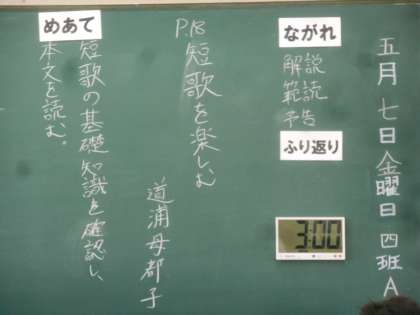 五月七日金曜日四班A
ながれ
解説
範読
予告
ふり返り
3:00
P.18 短歌を楽しむ
道浦母都子
めあて
短歌の基礎知識を確認し、
本文を読む。